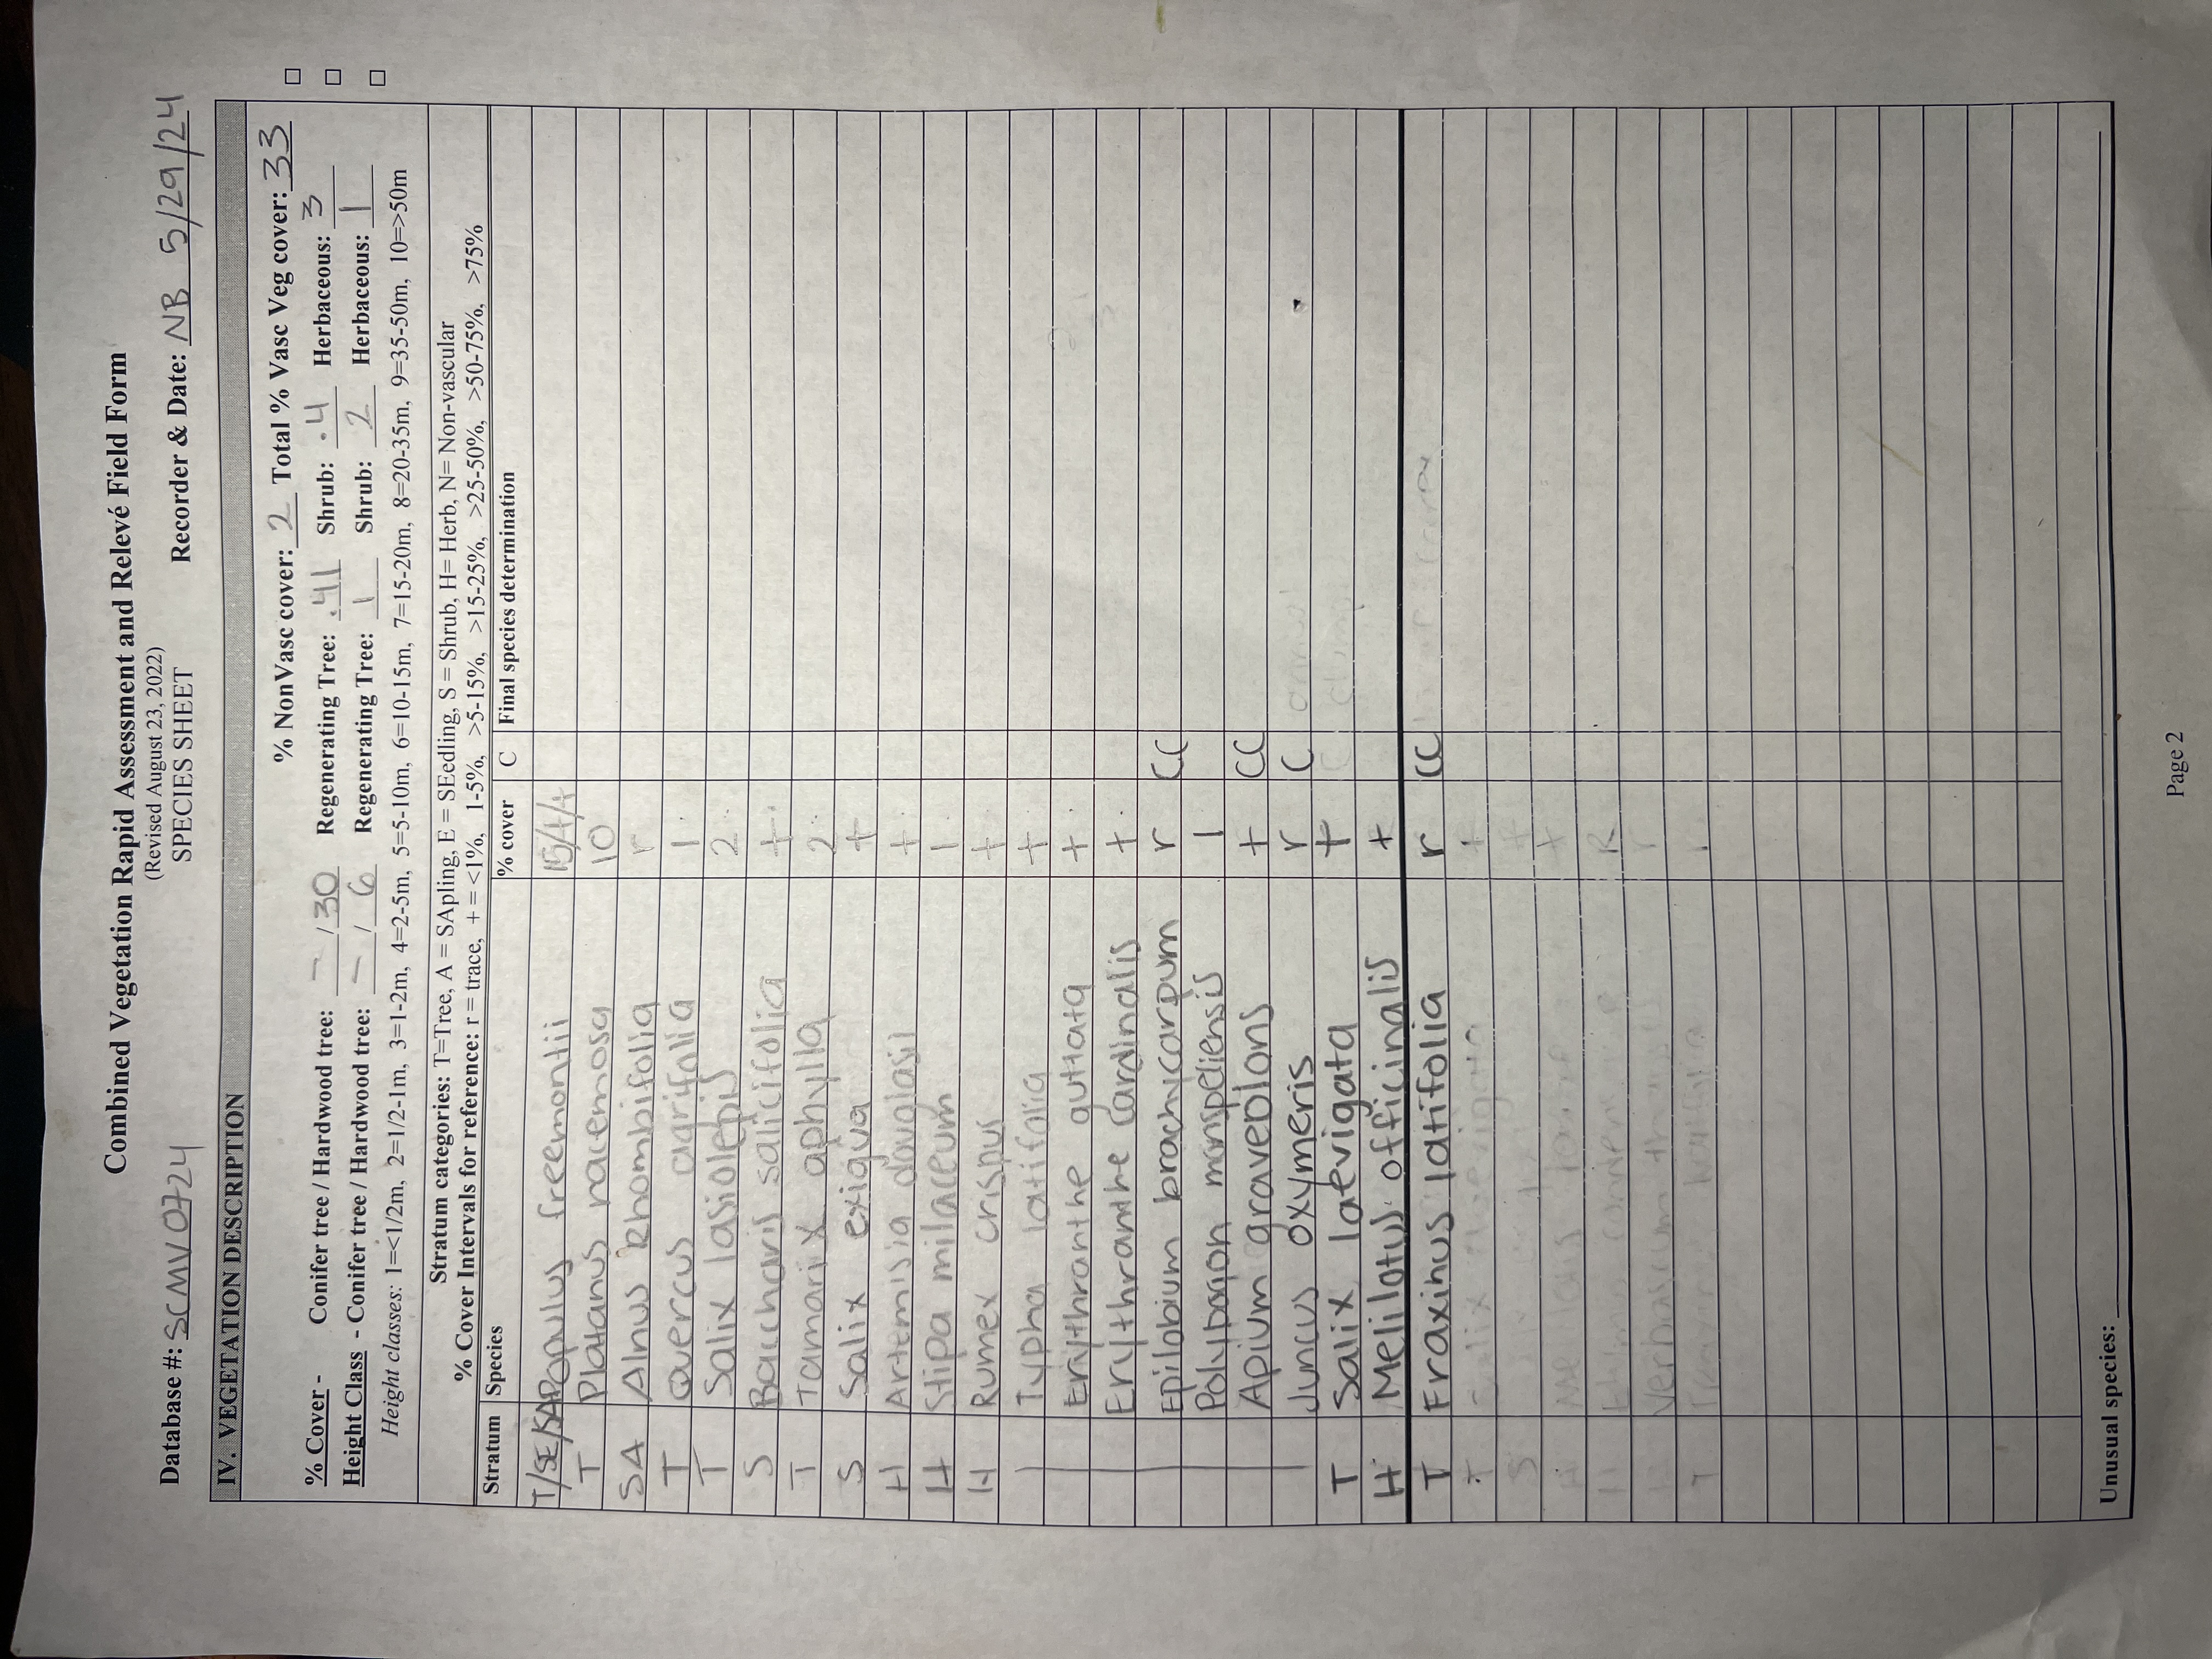 Combined Vegetation Rapid Assessment and Relevé Field Form
(Revised August 23, 2022)
SPECIES SHEET
Database #: SCMV0724 Recorder & Date: NB 5/29/24
IV. VEGETATION DESCRIPTION
% NonVasc cover: 2 Total % Vasc Veg cover: 33
% Cover - Conifer tree / Hardwood tree: - / 30 Regenerating Tree: .41 Shrub: .4 Herbaceous: 3
Height Class - Conifer tree / Hardwood tree: - / 6 Regenerating Tree: 1 Shrub: 2 Herbaceous: 1
Height classes: 1=<1/2m, 2=1/2-1m, 3=1-2m, 4=2-5m, 5=5-10m, 6=10-15m, 7=15-20m, 8=20-35m, 9=35-50m, 10=>50m
Stratum categories: T=Tree, A = SApling, E = SEedling, S = Shrub, H= Herb, N= Non-vascular
% Cover Intervals for reference: r = trace, + = <1%, 1-5%, >5-15%, >15-25%, >25-50%, >50-75%, >75%
Stratum Species % cover C Final species determination
T/SE/SA Populus freemontii 15/+/+
T Platanus racemosa 10
SA Alnus Rhombifolia r
T Quercus agrifolia 1
T Salix lasiolepis 2
S Baccharis salicifolia +
T Tamarix aphylla 2
S Salix exigua +
H Artemisia douglasii +
H Stipa milaceum 1
H Rumex crispus +
| Typha latifolia +
| Erythranthe guttata +
| Erythranthe Cardinalis +
| Epilobium brachycarpum r CC
| Polypogon monspeliensis 1
| Apium graveolons + CC
| Juncus oxymeris r C
T Salix laevigata +
H Melilotus officinalis +
T Fraxinus latifolia r CC
Unusual species:
Page 2